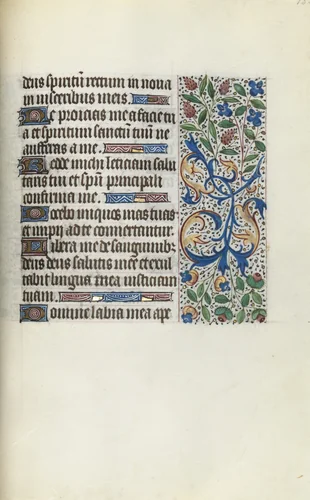 deus spiritū rectum in noua
in uisceribus meis.
Ne proicias me a facie tu
a et spiritum sanctū tuū ne
auferas a me.
Redde michi leticiam salu
taris tui et spū principali
confirma me.
Docebo iniquos uias tuas
et impij ad te conuertantur
Libera me de sanguinib
deus deus salutis mee et exul
tabit lingua mea iusticiam
tuam.
Domine labia mea ape